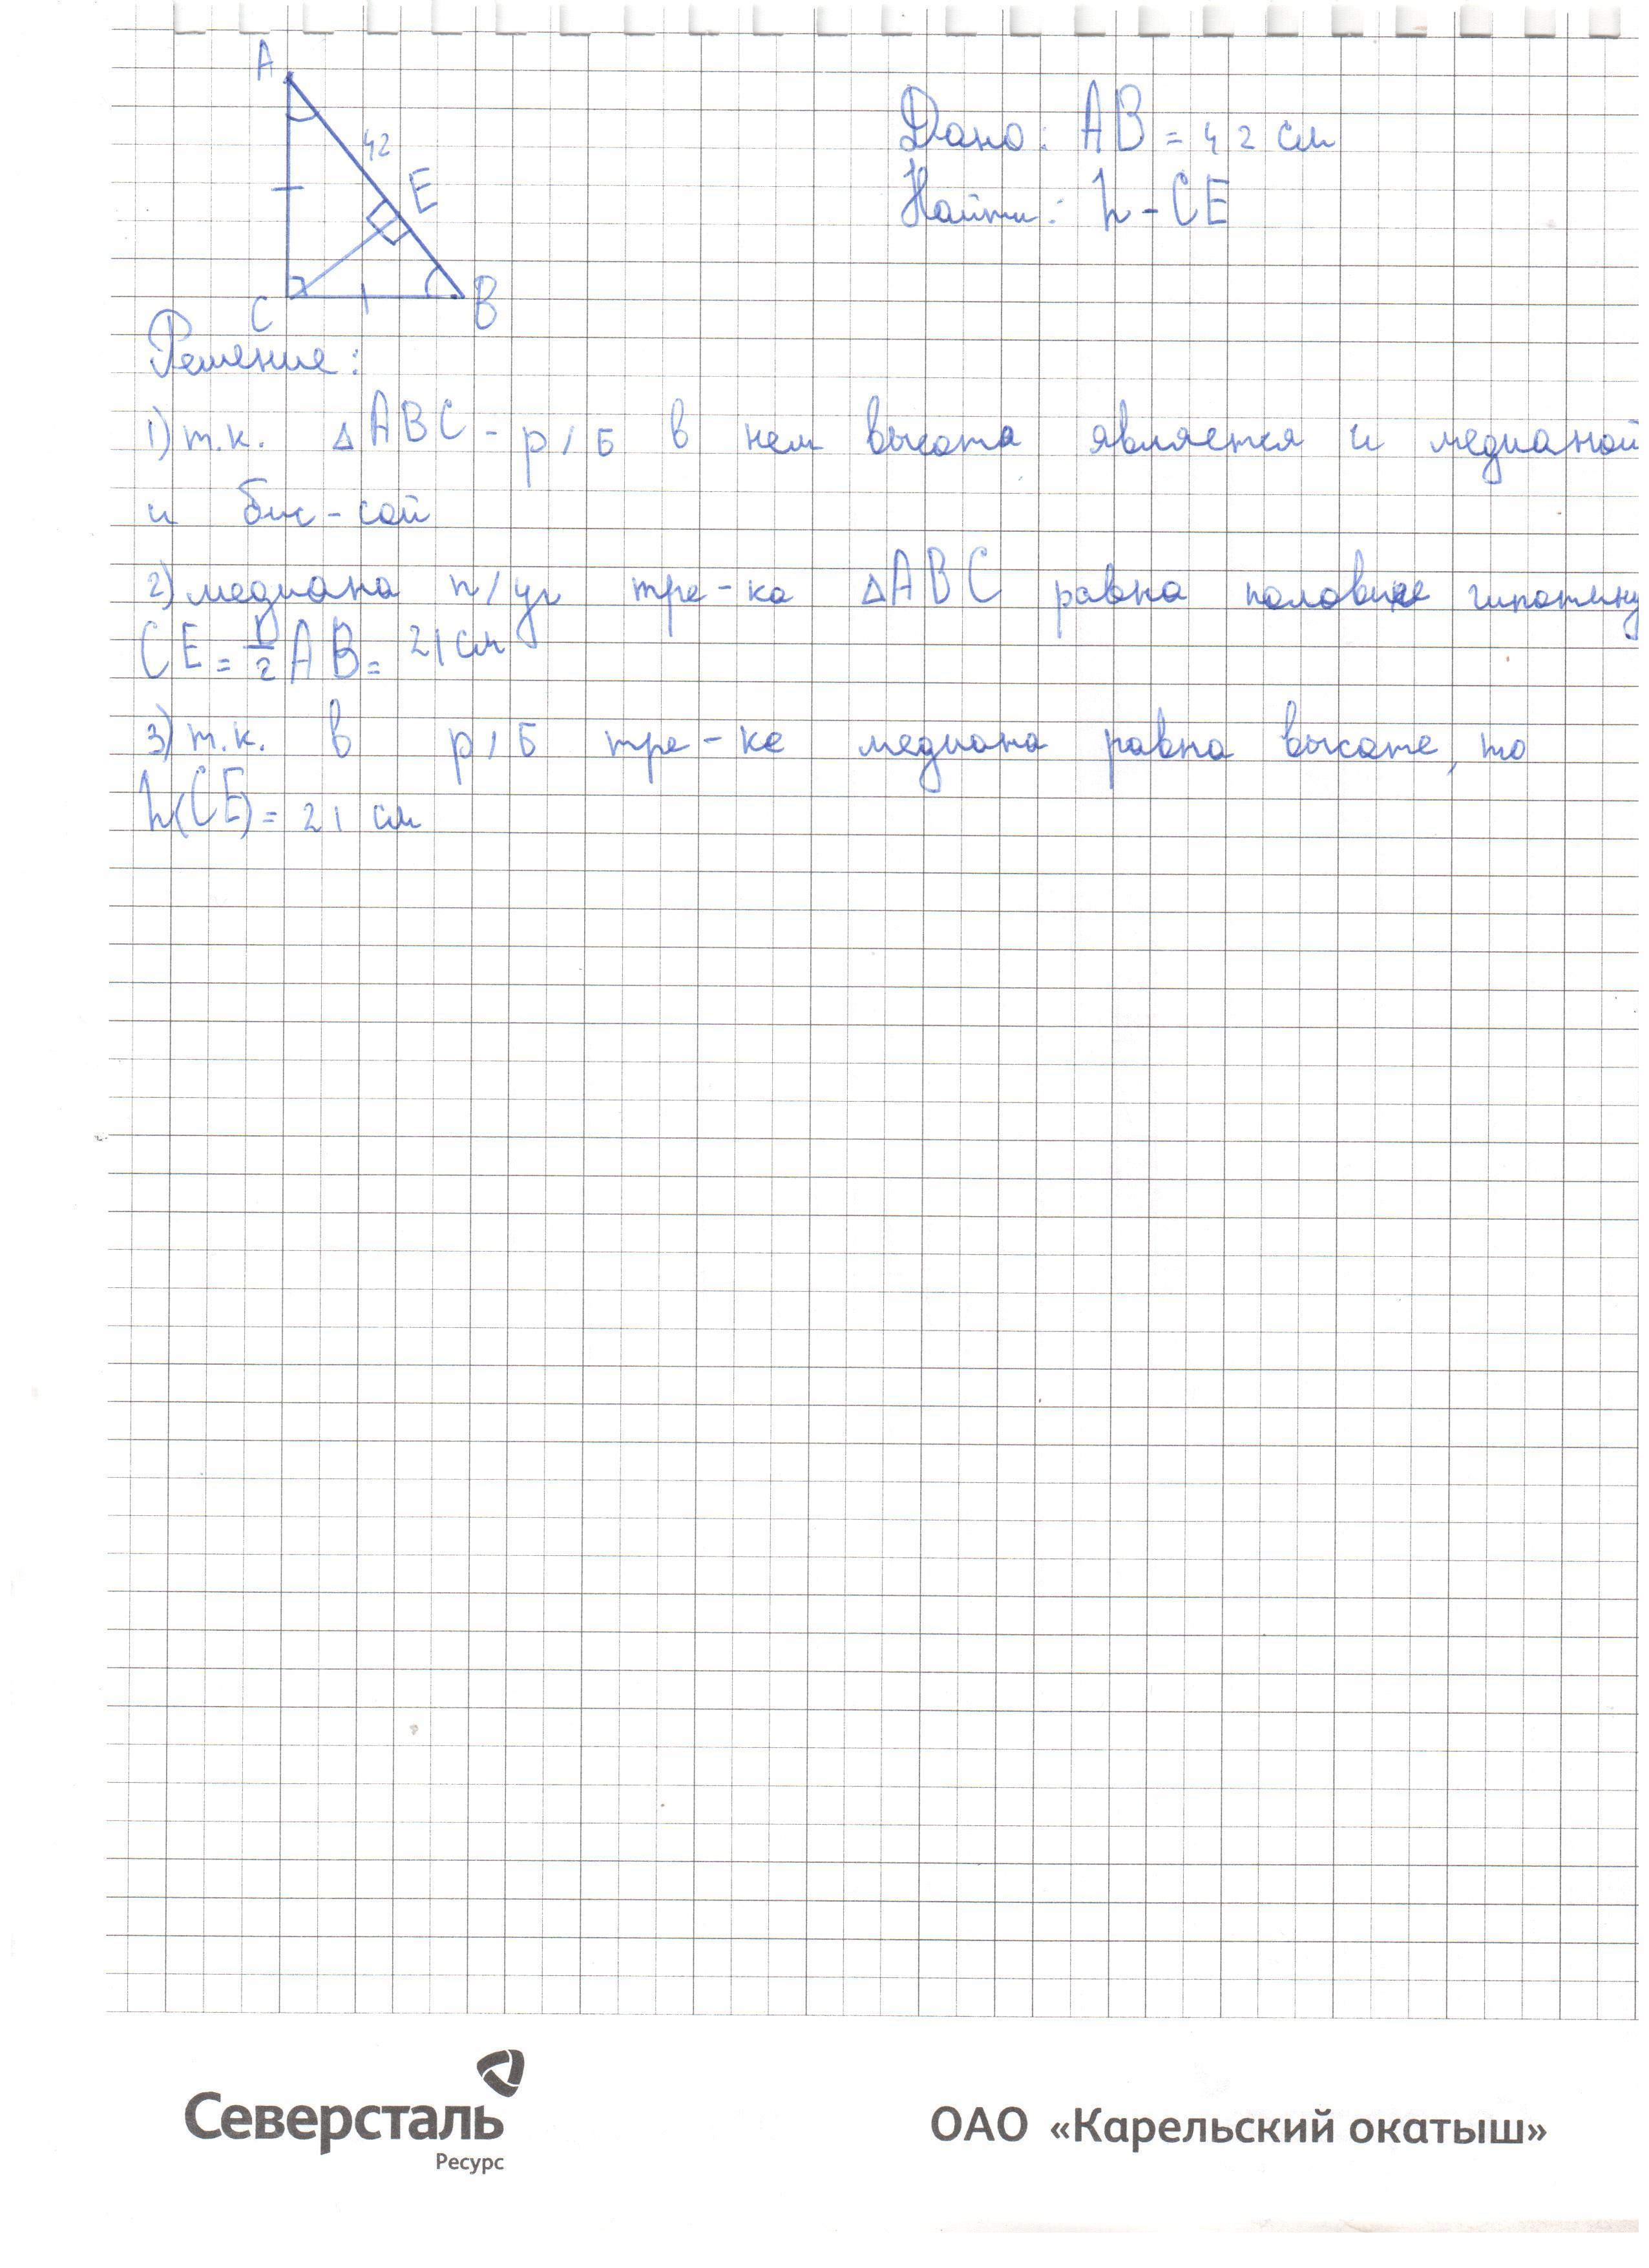 A
42
E
C
B
Дано: AB = 42 см
Найти: h - CE
Решение:
1) т.к. △ABC - р/Б в нем высота является и медианой
и бис-сой
2) медиана п/уг тре-ка △ABC равна половине гипотину
CE = 1/2 AB = 21 см
3) т.к. в р/Б тре-ке медиана равна высоте, то
h(CE) = 21 см
Северсталь
Ресурс
ОАО «Карельский окатыш»